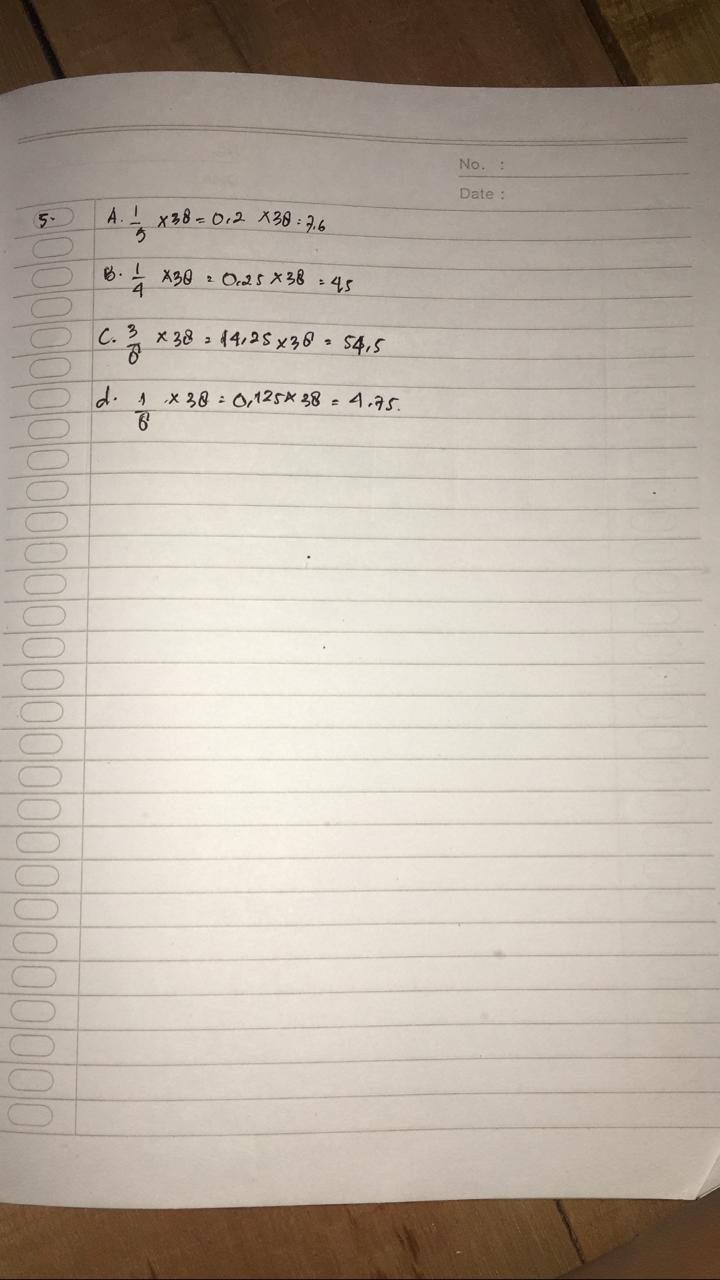 No. :
Date :
5. A. 1/5 x 38 = 0,2 x 38 = 7.6
B. 1/4 x 38 = 0.25 x 38 = 45
C. 3/8 x 38 = 14,25 x 38 = 54,5
d. 1/8 x 38 = 0,125 x 38 = 4.75.